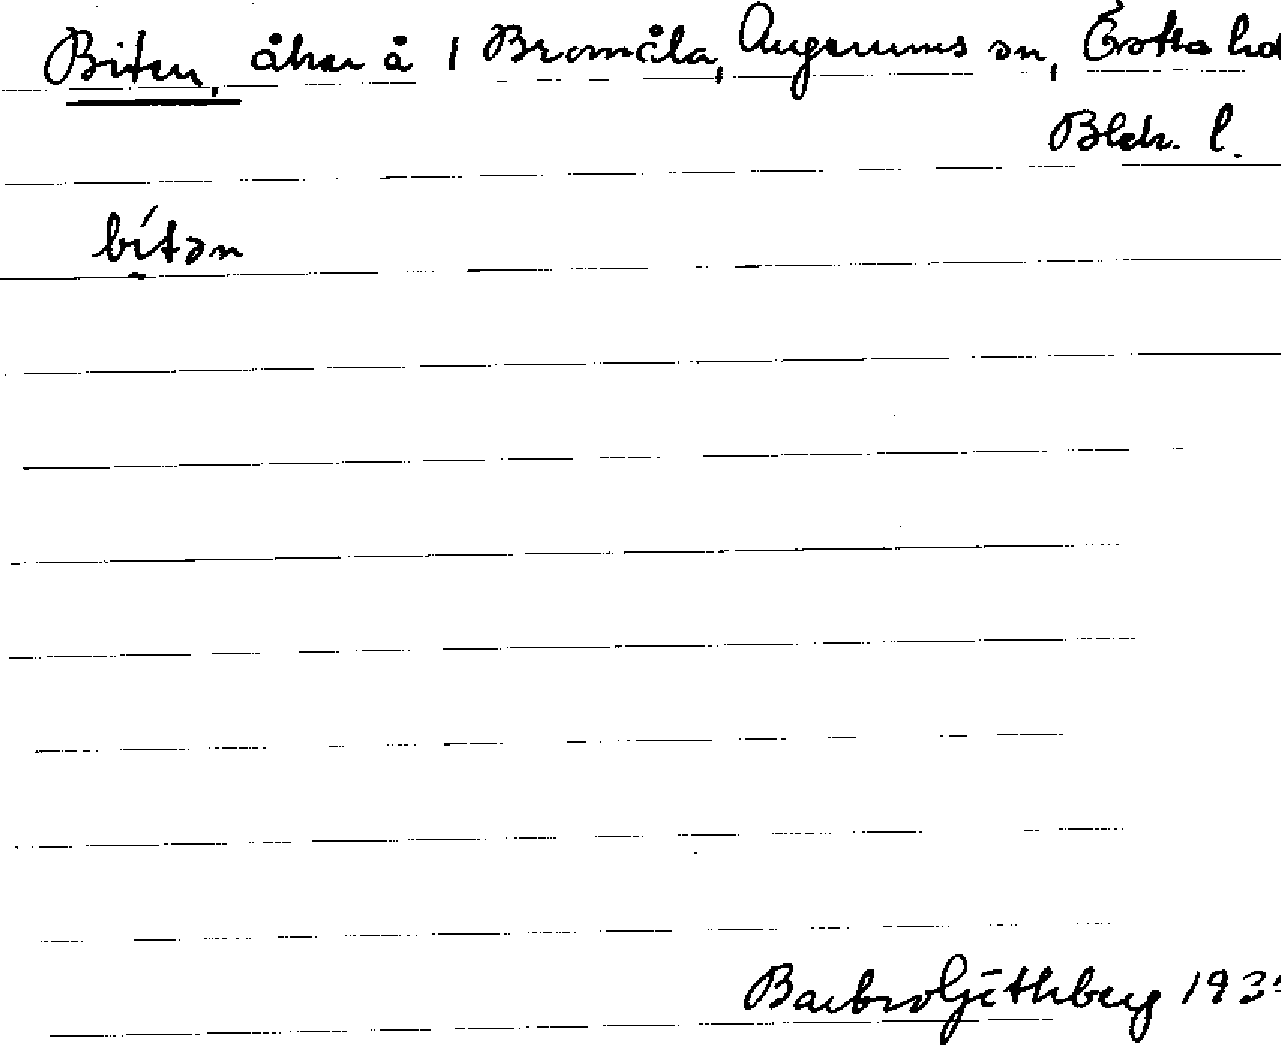 Biten, åker å 1 Bromåla, Augerums sn, Östra hd
Blek. l.
bítən
Barbro Göthberg 193